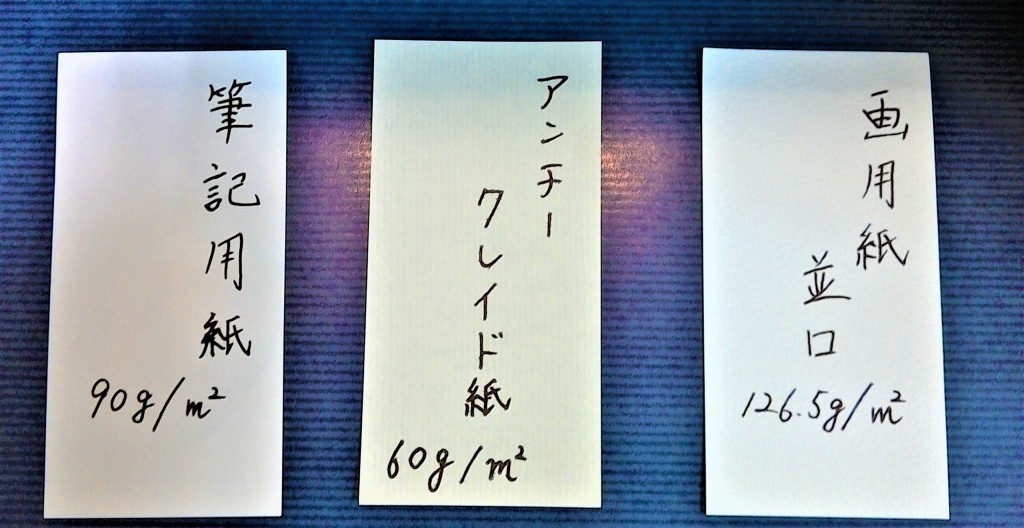 筆記用紙
90g/m²
アンチー
クレイド紙
60g/m²
画用紙
並口
126.5g/m²